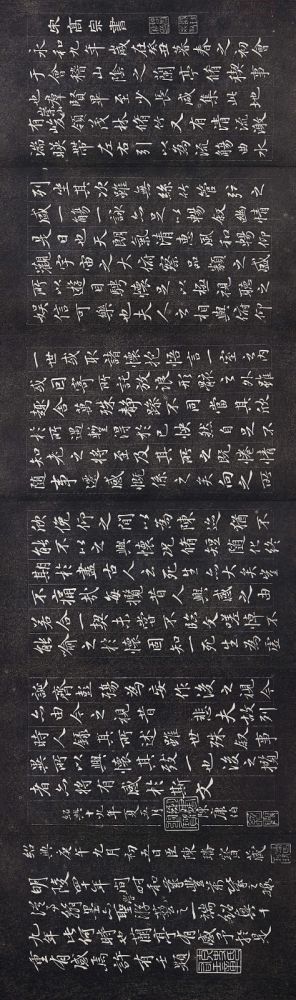 宋高宗書
永和九年歲在癸丑暮春之初會
于會稽山陰之蘭亭脩禊事
也羣賢畢至少長咸集此地
有峻領茂林脩竹又有清流激
湍暎帶左右引以為流觴曲水
列坐其次雖無絲竹管弦之
盛一觴一詠亦足以暢敘幽情
是日也天朗氣清惠風和暢仰
觀宇宙之大俯察品類之盛
所以遊目騁懷足以極視聽之
娛信可樂也夫人之相與俯仰
一世或取諸懷抱悟言一室之內
或因寄所託放浪形骸之外雖
趣舍萬殊靜躁不同當其欣
於所遇暫得於己快然自足不
知老之將至及其所之既惓情
隨事遷感慨係之矣向之所
欣俛仰之間以為陳迹猶不
能不以之興懷況脩短隨化終
期於盡古人云死生亦大矣豈
不痛哉每攬昔人興感之由
若合一契未嘗不臨文嗟悼不
能喻之於懷固知一死生為虛
誕齊彭殤為妄作後之視今
亦由今之視昔 悲夫故列
時人錄其所述雖世殊事
異所以興懷其致一也後之攬
者亦將有感於斯文
紹興十九年夏五月 陳康伯
紹興庚午九月初五日臣陳
九年此何時也蘭亭有感予於是
重有感焉許有壬題